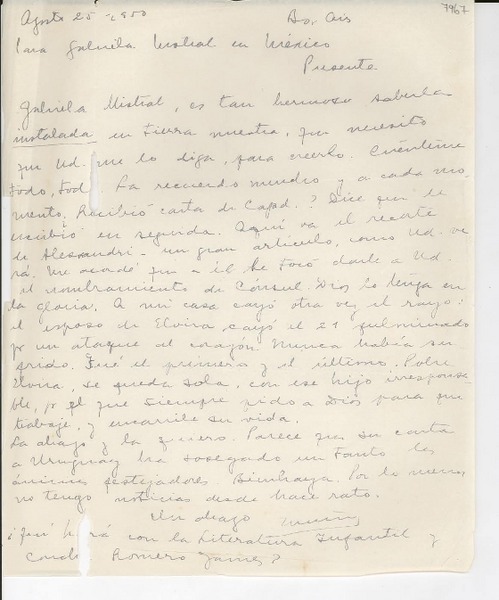 7967
Agosto 25 - 1950 Bs. Ais
Para Gabriela Mistral en México
Presente
Gabriela Mistral, es tan hermoso saberla
instalada en tierra nuestra, que necesito
que Ud. me lo diga, para creerlo. Cuénteme
todo, tod La recuerdo mucho y a cada mo-
mento. Recibió carta de Capd. ? Dice que le
escribió en segunda. Aquí va el recorte
de Alessandri - un gran artículo, como Ud. ve-
rá. Me acordé que a él le tocó darle a Ud.
el nombramiento de Cónsul. Dios lo tenga en
la gloria. A mi casa cayó otra vez el rayo:
el esposo de Elvira cayó el 21 fulminado
por un ataque al corazón. Nunca había su-
frido. Fué el primero y el último. Pobre
Elvira, se queda sola, con ese hijo irresponsa-
ble, por el que siempre pido a Dios para que
trabaje, y encarile su vida.
La abrazo y la quiero. Parece que su carta
a Uruguay ha sosegado un tanto los
ánimos festejadores. Por lo menos
no tengo noticias desde hace rato.
Un abrazo
¿Qué hará con la Literatura Infantil y
Romero James?